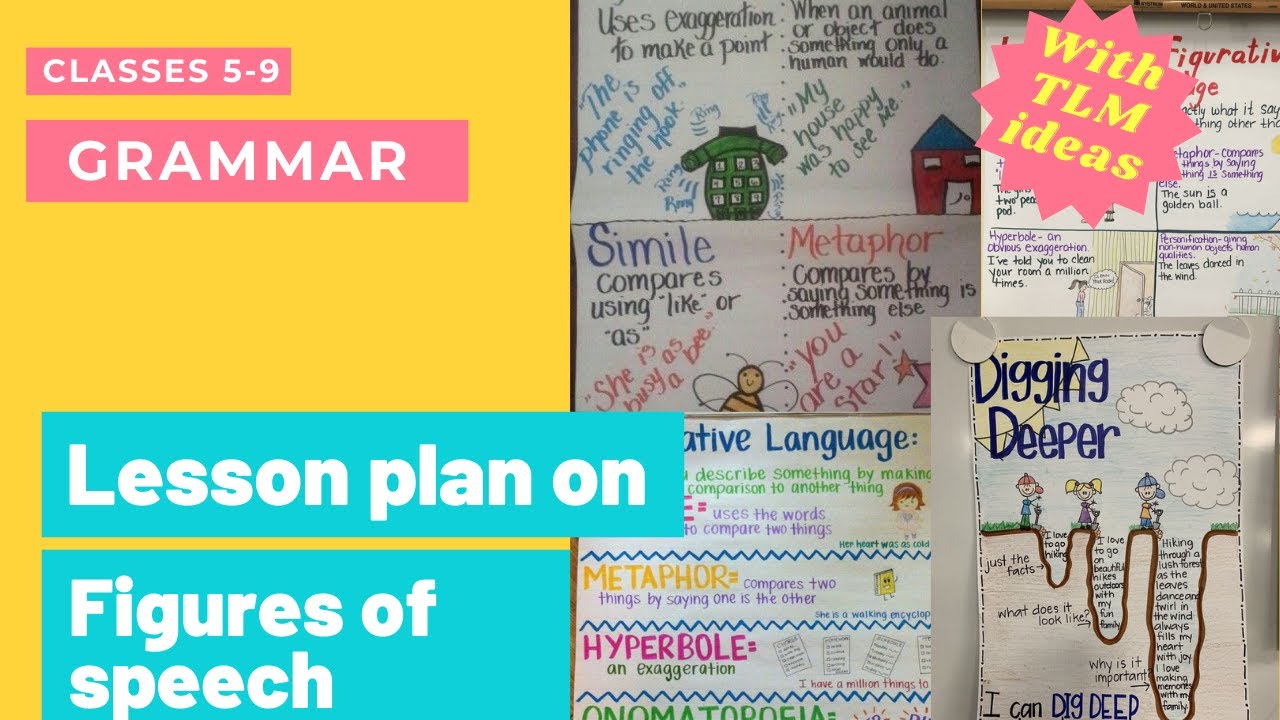 CLASSES 5-9
GRAMMAR
Lesson plan on
Figures of
speech
With
TLM
ideas
Uses exaggeration
to make a point
When an animal
or object does
something only a
human would do.
"The
phone is off
ringing
the hook."
Ring
Ring
Ring
"My
house
was happy
to see me."
Simile
compares
using "like" or
"as"
"She is
as
busy as
a bee."
Metaphor
Compares by
saying something is
something else
"you
are a
star!"
WORLD & UNITED STATES
Figurative
ge
actly what it say
thing other tha
Metaphor- compares
things by saying
thing is something
else.
The sun is a
golden ball.
two pea
pod.
Hyperbole- an
obvious exaggeration.
I've told you to clean
your room a million
times.
Personification- giving
non-human objects human
qualities.
The leaves danced in
the wind.
ative Language:
u describe something by making
comparison to another thing
E= uses the words
to compare two things
Her heart was as cold
METAPHOR= compares two
things by saying one is the other
She is a walking encyclop
HYPERBOLE=
an exaggeration
I have a million things to
ONOMATOPOEIA=
Digging
Deeper
just the
facts
I love
to go
hiking.
what does it
look like?
I love
to go
on
beautiful
hikes
outdoors
with
my
fun
family.
Why is it
important
Hiking
through a
lush forest
as the
leaves
dance and
twirl in
the wind
always
fills my
heart
with joy
I love
making
memories
with my
family.
I can DIG DEEP